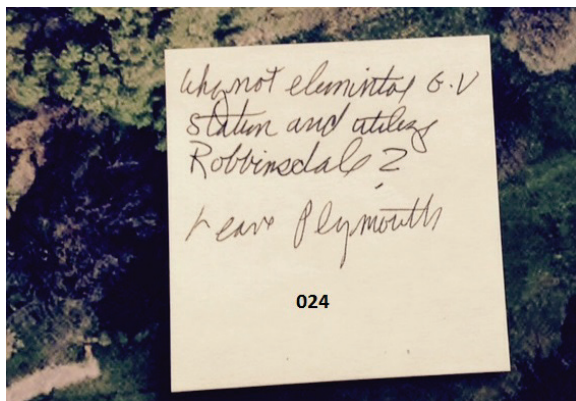 Why not elemintae G.V
station and utilize
Robbinsdale?
Leave Plymouth
024